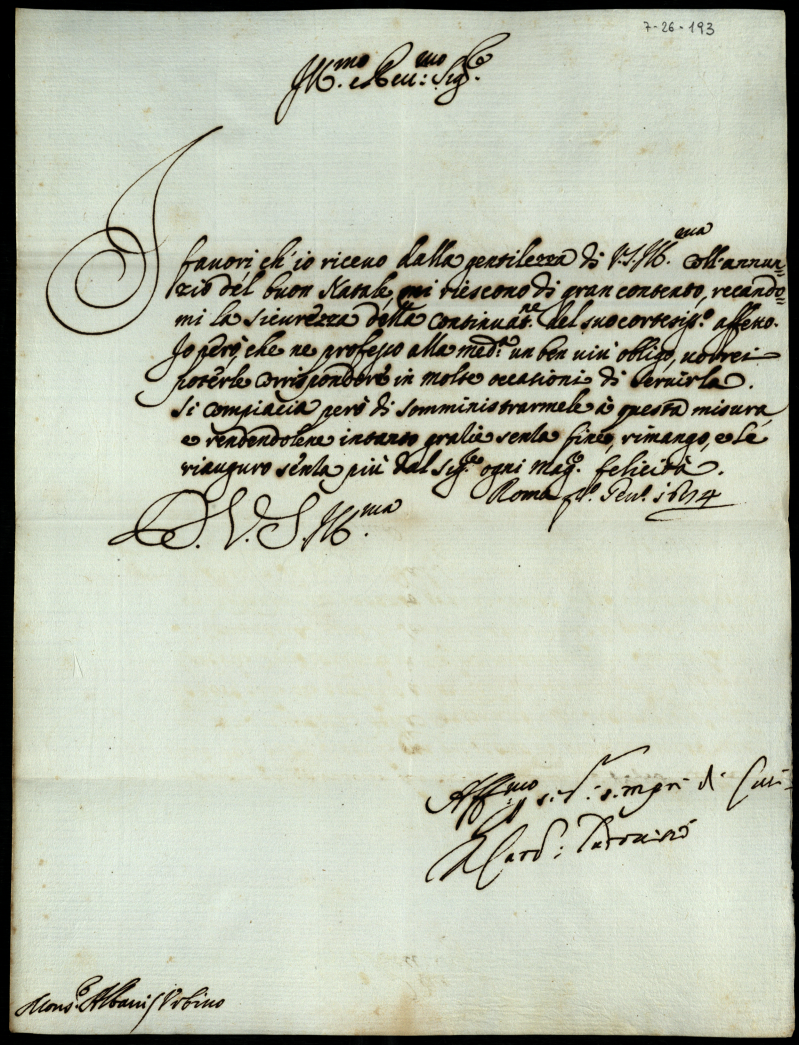 7-26-193
Ill.mo e Reu:mo Sig.re
I fauori ch'io riceuo dalla gentilezza di V.S.Ill.ma coll'annun=
zio del buon Natale, mi riescono di gran contento, recando=
mi la sicurezza della continuat.ne del suo cortesiss.o affetto.
Io però, che ne professo alla med.a un ben viuo obligo, uorrei
poterle corrispondere in molte occasioni di seruirla.
Si compiacia però di somministrarmele à questa misura,
e rendendolene intanto gratie senza fine, rimango, e le
riauguro senza più dal Sig.re ogni mag.re felicità.
Roma p.o Gen.o
D. V. S. Ill.ma
Aff.mo s. sempre di Cuo
Il Card:
Mons.r Albani / Vrbino